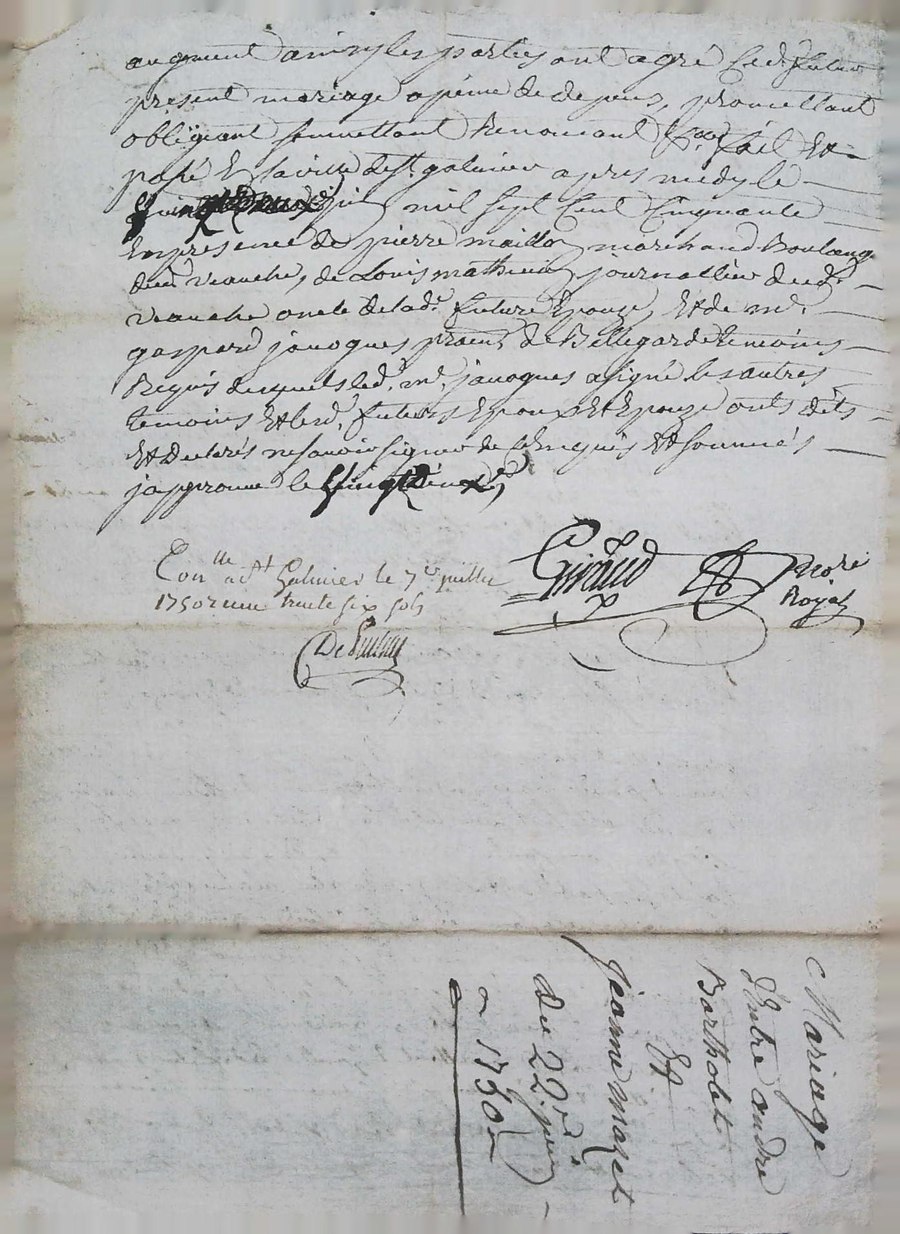 augment ainsy les partyes ont agré led. futur
present mariage a peine de depens, promettant
obligeant soumettant Renonçant fait Et
passé En la ville de st galmier apres midy le
vingt deux juin mil sept Cent Cinquante
En presence de pierre maillon marchand Boulang
dud veauche, de Louis mathieu journallier dud.
veauche oncle de lad.e future Epouze, Et de me.
gaspard janoques de Bellegarde temoins
Requis desquels led. me. janoques a signé les autres
temoins Et lesd. futurs Epoux Et Epouze onts dits
Et declarés ne savoir signer de Enquis Et sommés
japprouve le vingt deux
Giraud nore
Royal
Conlle a st Galmier le 7e juillet
1750 reçu trente six sols
Mariage
d'Entre andre
Bartholet
Et
Jeanne mazet
Du 22e. juin
1750